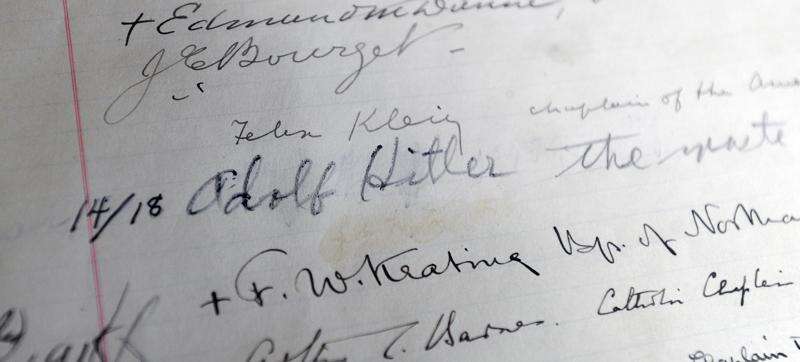 + Edmund M Dunne,
J E Bourget
Felix Klein chaplain of the Ame
14/18 Adolf Hitler the waste
+ F. W. Keating Bp. of Northa
C. Barnes. Catholic Chaplain
Chaplain